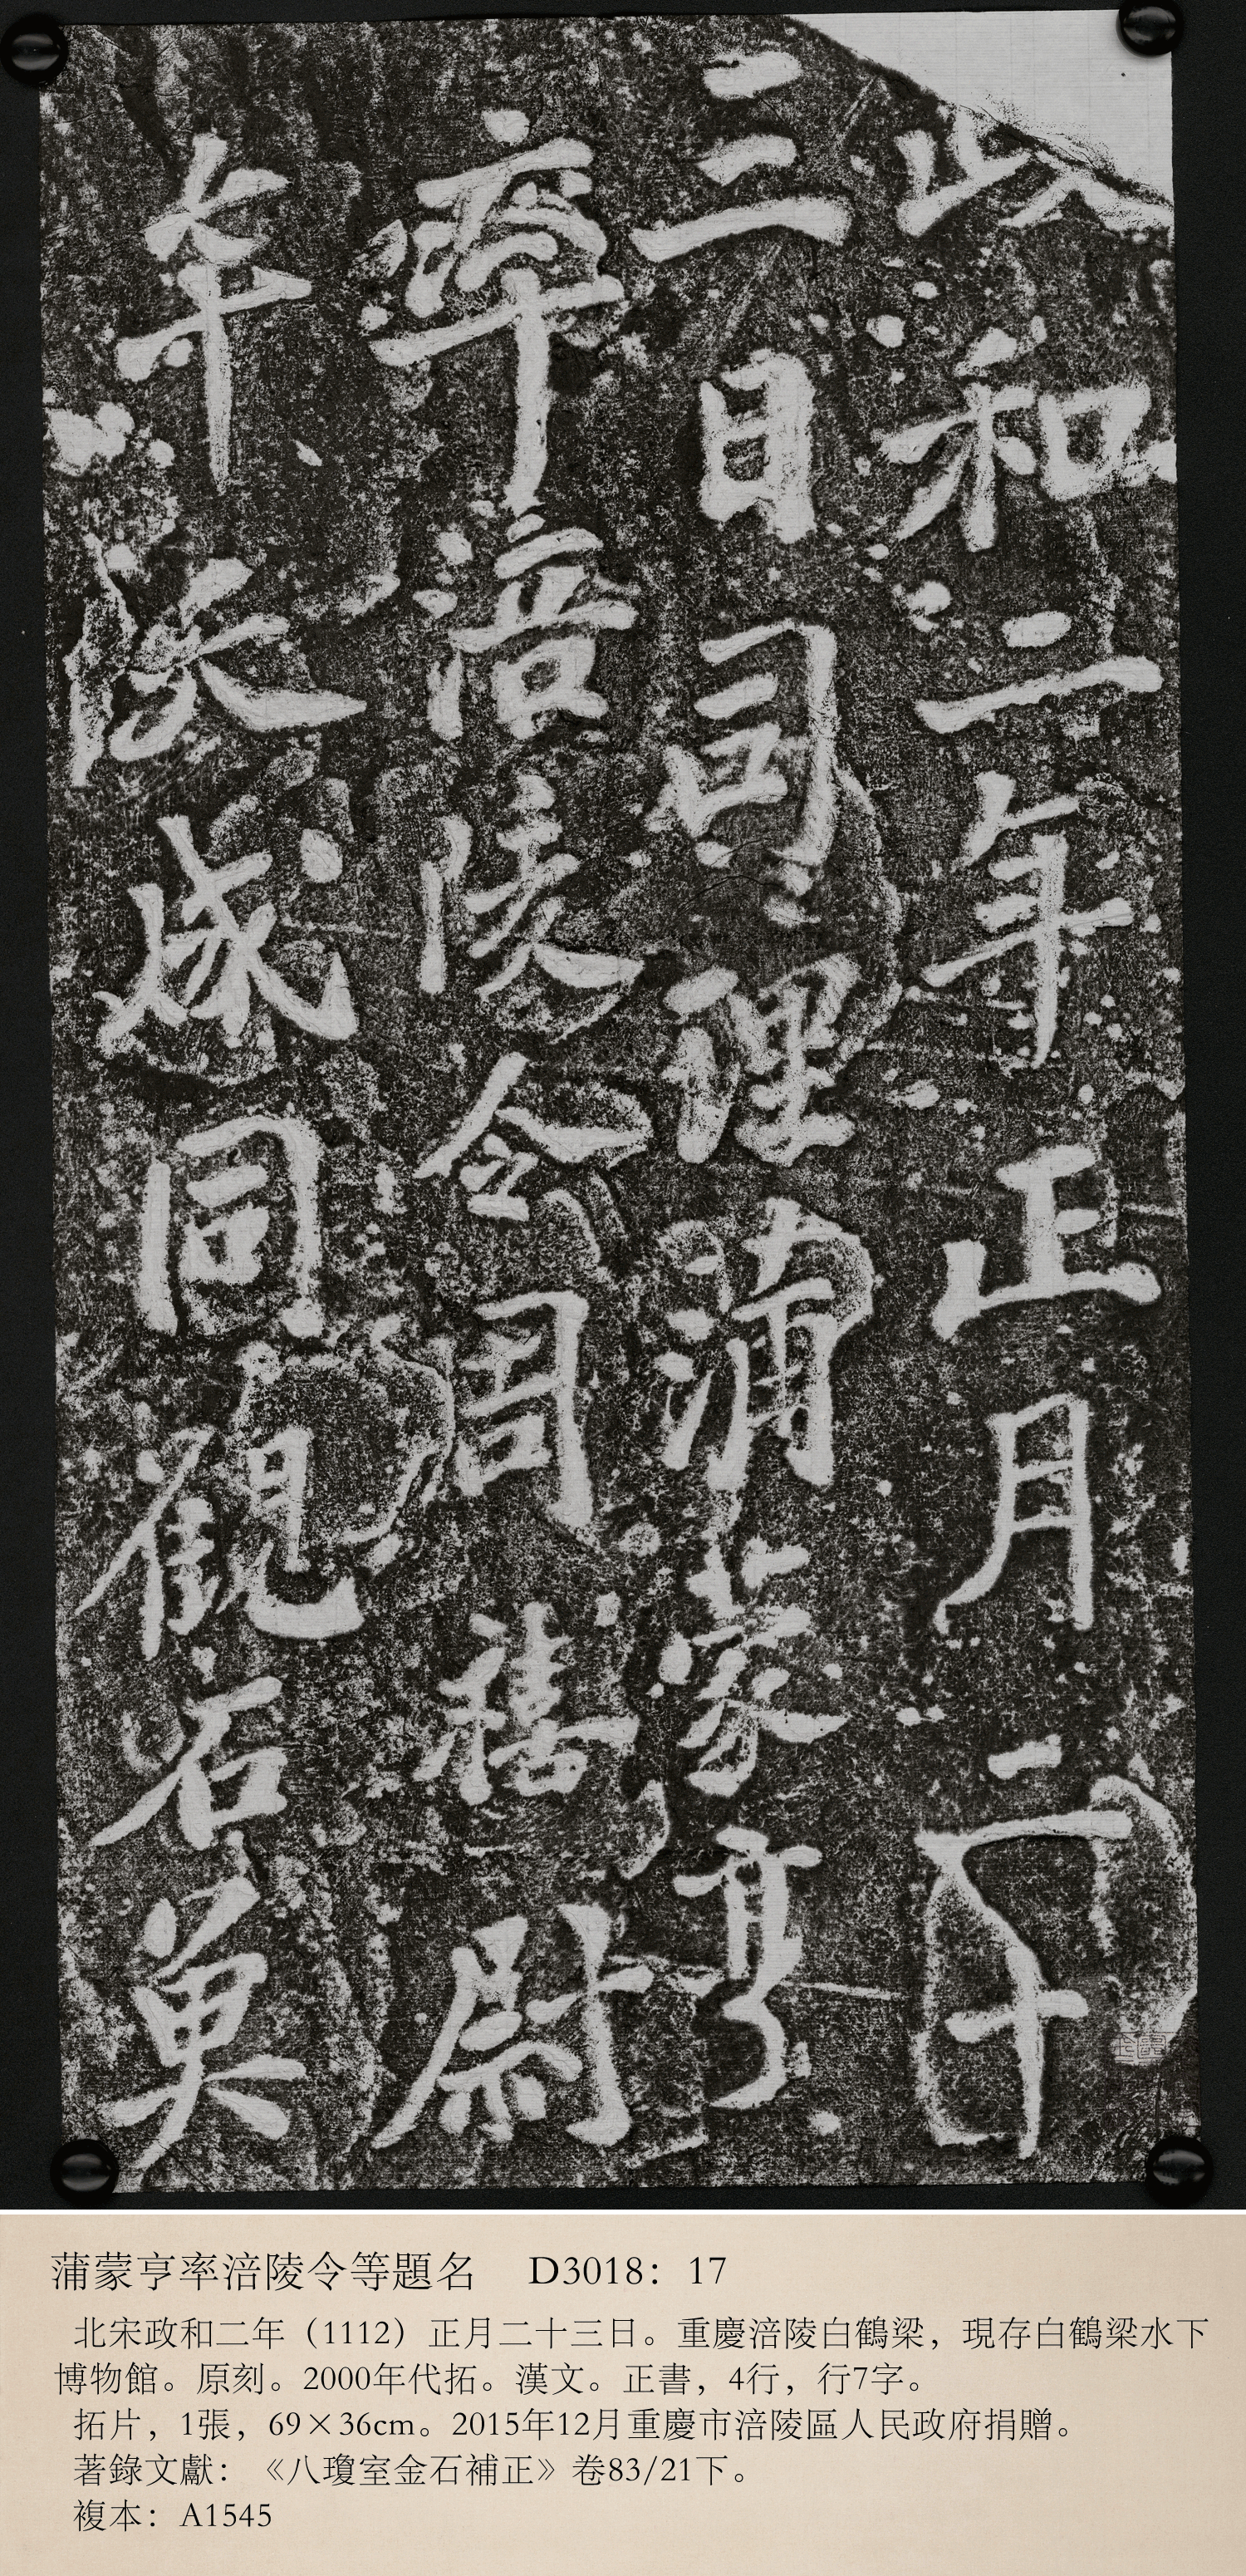 政和二年正月二十
三日司理蒲蒙亨
率涪陵令周禧尉
牟天成同觀石魚
蒲蒙亨率涪陵令等題名 D3018：17
北宋政和二年（1112）正月二十三日。重慶涪陵白鶴梁，現存白鶴梁水下
博物館。原刻。2000年代拓。漢文。正書，4行，行7字。
拓片，1張，69×36cm。2015年12月重慶市涪陵區人民政府捐贈。
著錄文獻：《八瓊室金石補正》卷83/21下。
複本：A1545